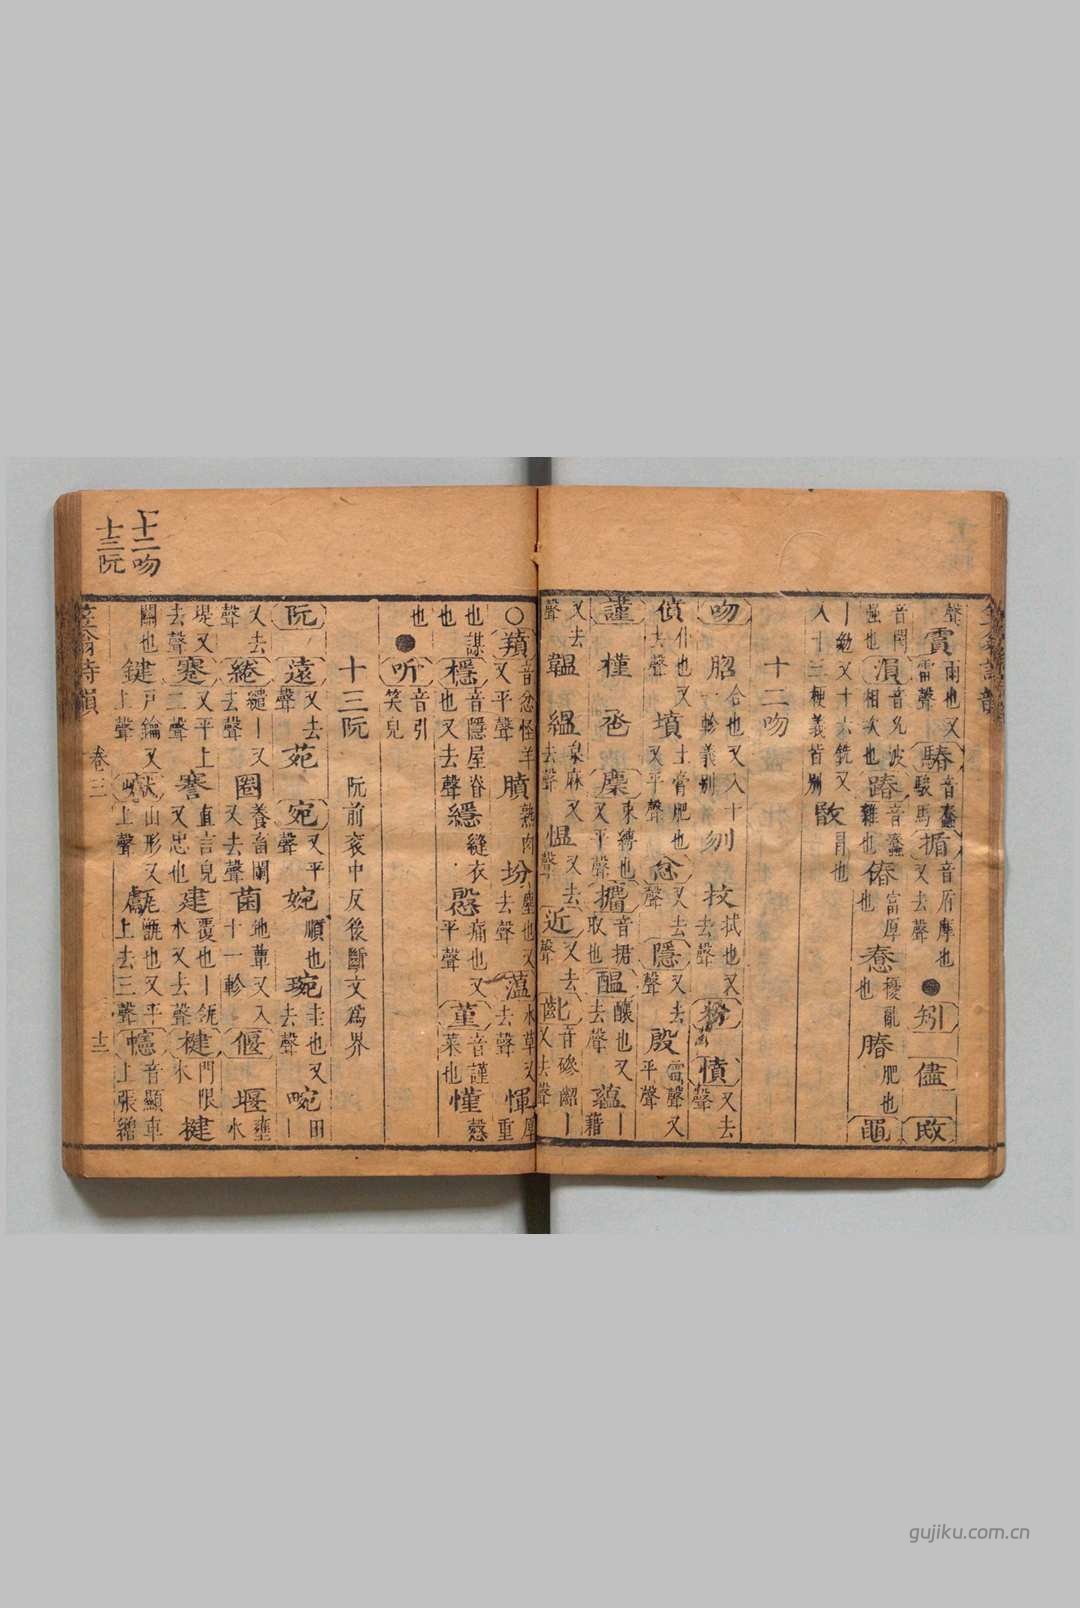 聲霣雨也又雷聲騫音蠢駿馬揗音盾摩也又去聲●矧儘敃
音閔强也涢音允波相次也蹖音蠢雜也偆富厚也惷擾亂也膞肥也黽
丨勄又十六銑又入十三梗義皆別敯冒也
十二吻
吻䐇合也又入十一軫義別刎抆拭也又去聲粉憤又去聲
僨仆也又去聲墳土膏肥也又平聲忿又去聲隱又去聲殷雷聲又平聲
謹槿卺麇束縛也又平聲攟音捃取也醞釀也又去聲蘊丨藉
又去聲韞縕枲麻又去聲愠又去聲近又去聲齔音磣齠丨又去聲
○羵音忿怪羊又平聲膹熟肉坋塵也又去聲薀水草又去聲惲厚重
也謀也櫽音隱屋脊也又去聲縕縫衣慇痛也又平聲菫音謹菜也懂慤
也●听音引笑皃
十三阮 阮前衮中反後斷文爲界
阮遠又去聲苑宛又平聲婉順也琬圭也又去聲畹田丨
又去聲綣繾丨又去聲圈養畜闌又去聲菌地蕈又入十一軫偃堰壅水
堤又去聲蹇又平上三聲謇直言皃又忠也建覆也丨瓴水又去聲楗門限木楗
關也鍵戶鑰又上聲巘山形又上聲甗无底甑也又平上去三聲幰音顯車上張繒
笠翁詩韻 卷三 十三
十二吻
十三阮
gujiku.com.cn